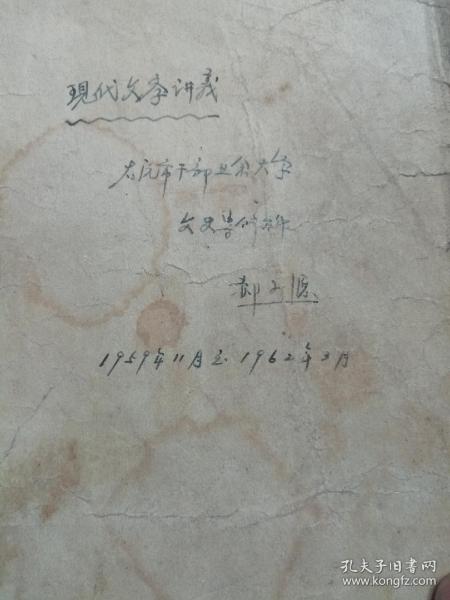 現代文学讲义
太原市干部业余大学
文史专修科
郝
1959年11月至1962年3月
孔夫子旧书网
www.kongfz.com